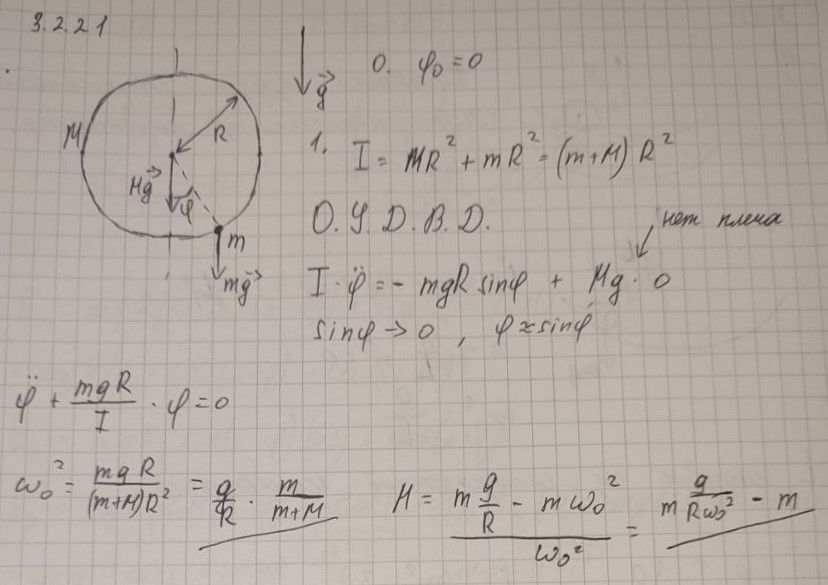 3.2.21
M
R
Mg
φ
m
mg
g
0. φ₀ = 0
1. I = MR² + mR² = (m+M) R²
О. У. Д. В. Д.
нет плеча
I · φ̈ = - mgR sinφ + Mg · 0
sinφ → 0 , φ ≈ sinφ
φ̈ + mgR/I · φ = 0
ω₀² = mgR/(m+M)R² = g/R · m/(m+M)
M = (m g/R - mω₀²)/ω₀² = m g/(Rω₀²) - m